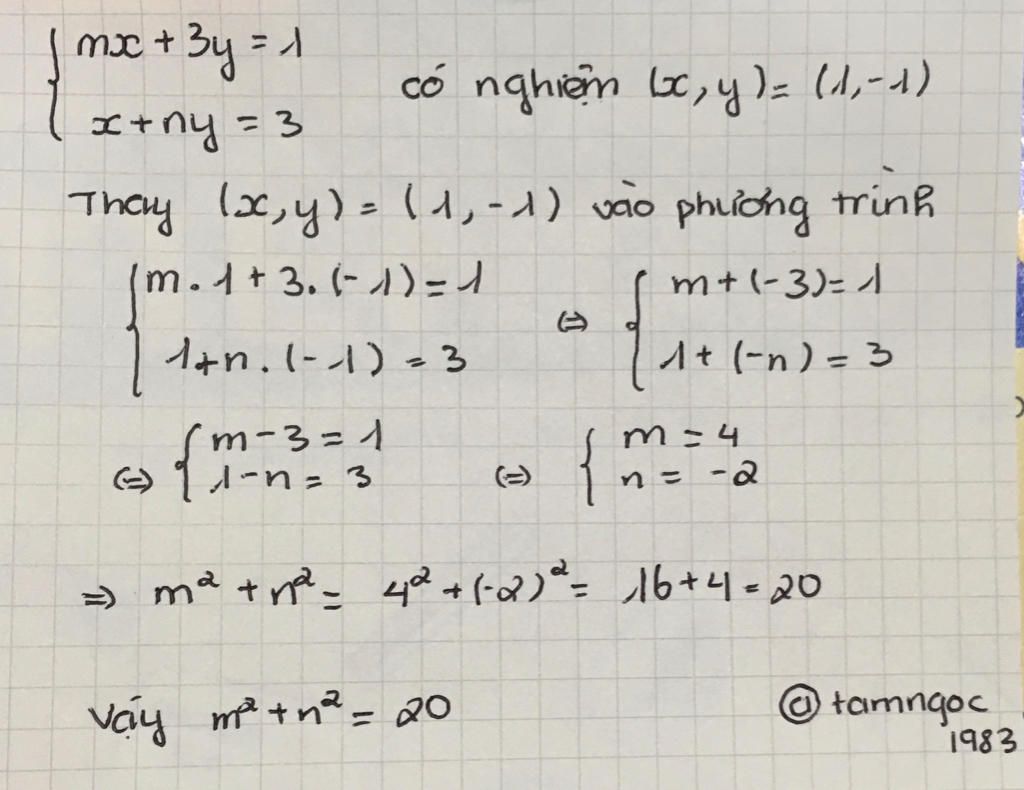 { mx + 3y = 1
x + ny = 3
có nghiệm (x,y) = (1,-1)
Thay (x,y) = (1,-1) vào phương trình
{ m.1 + 3.(-1) = 1 ⇔ { m + (-3) = 1
1 + n.(-1) = 3 1 + (-n) = 3
⇔ { m - 3 = 1 ⇔ { m = 4
1 - n = 3 n = -2
⇒ m² + n² = 4² + (-2)² = 16 + 4 = 20
Vậy m² + n² = 20
@tamngoc
1983